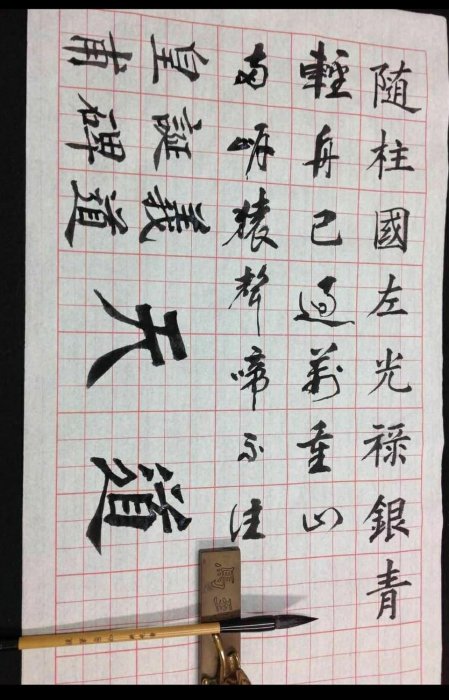 隨柱國左光祿銀青
輕舟已過萬重山
两岸猿聲啼不住
皇甫
誕碑
義道
天道